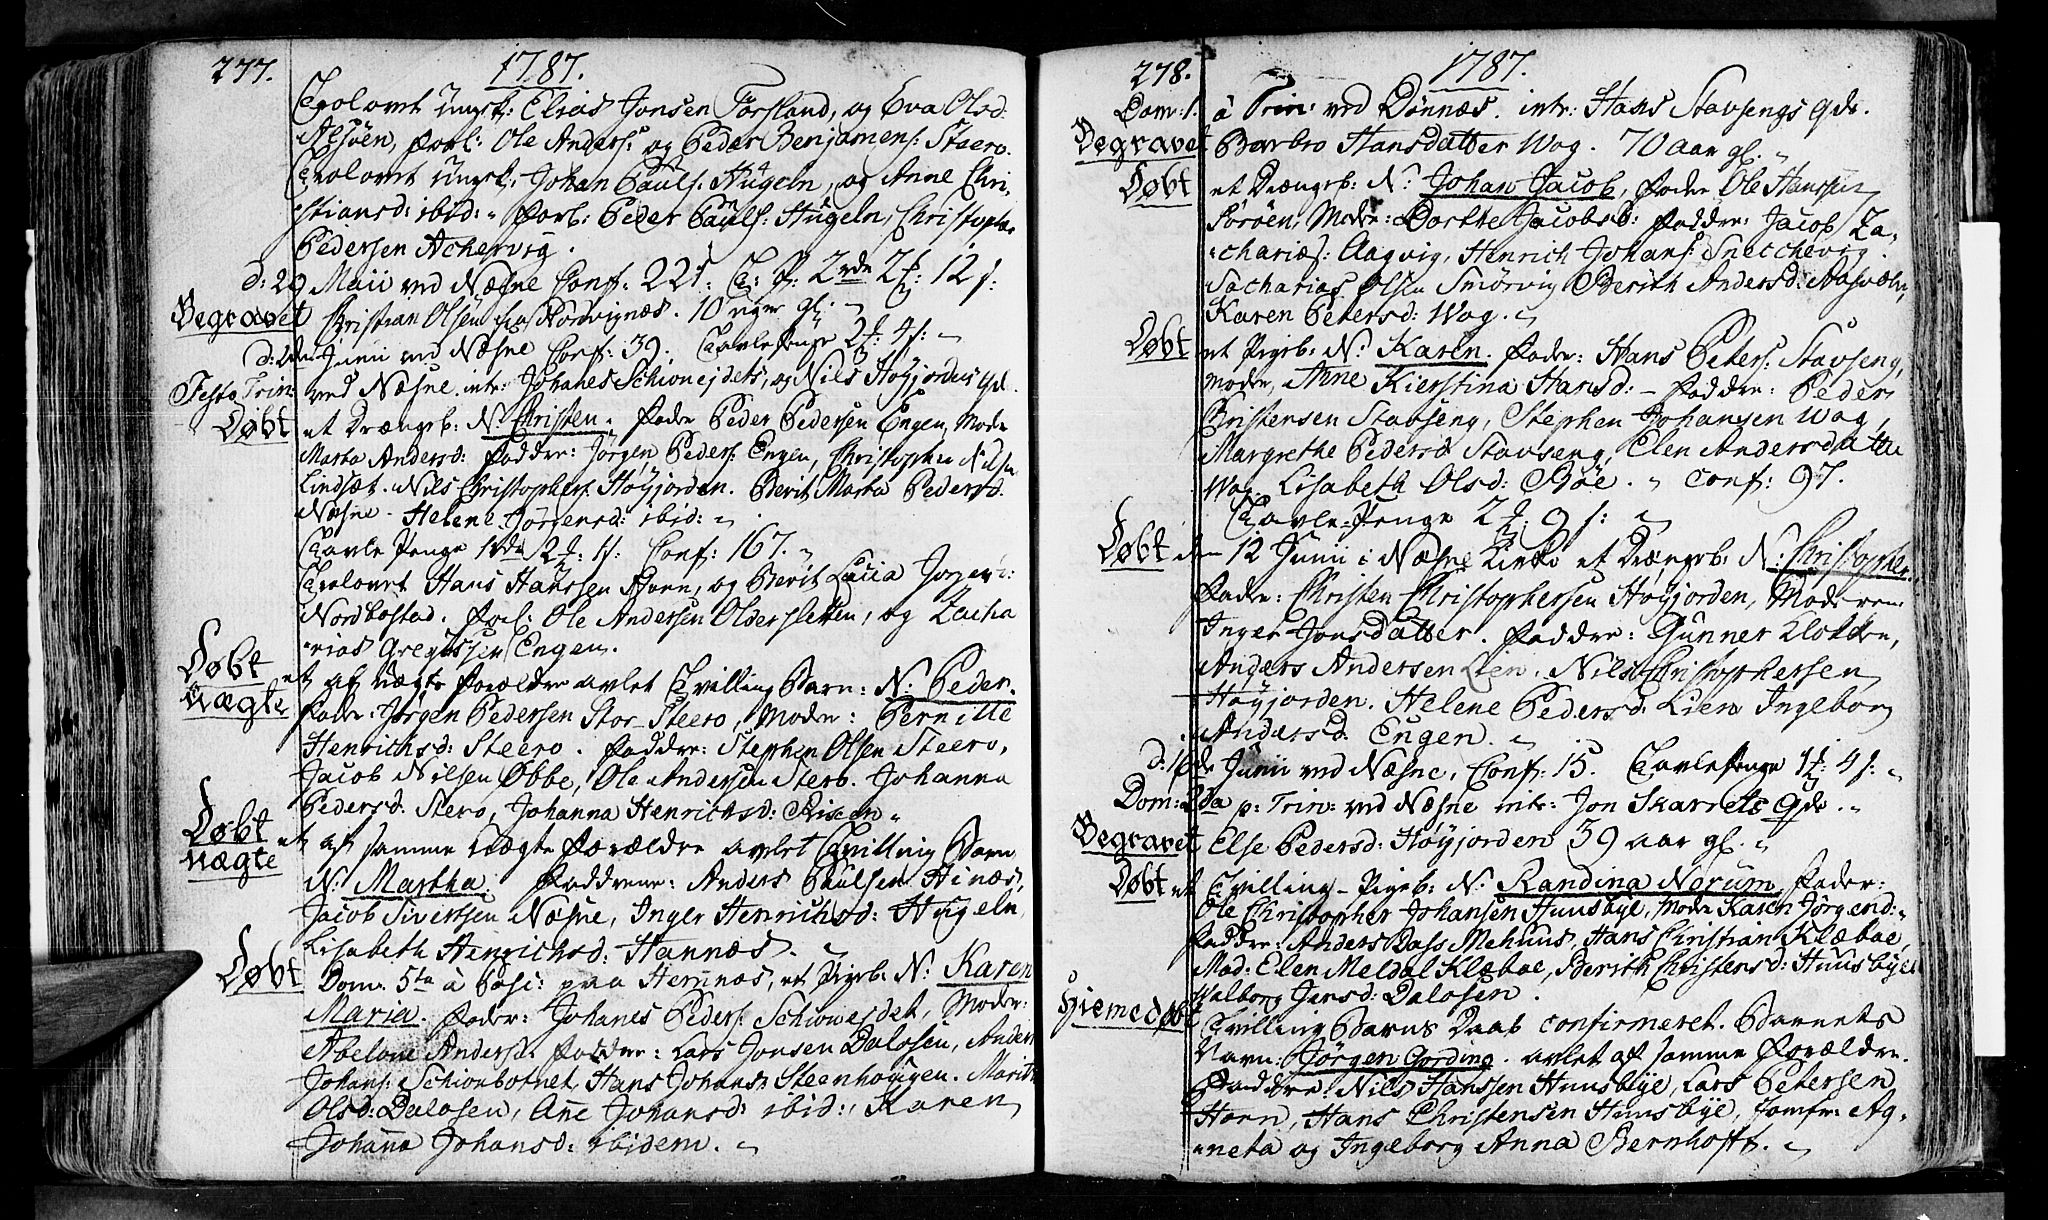 277. 1787.
Trolovet Ungk: Elias Jonsen Forsland, og Eva Olsd:
forl: Ole Anders: og Peder Benjamens: Steero.
Trolovet Ungk: Johan Pauls: Hugeln, og Anne Chri-
stiansd: ibid: Forl: Peder Pauls: Hugeln, Christopher
Pedersen Achervig.
d: 29 Maii ved Næsne Conf: 221. 12 s:
Begravet Christian Olsen 10 uger gl:
Junii ved Næsne Conf: 39. Tavlepenge 4 s:
Festo Trin: ved Næsne intr: Johanes Schiowejdets, og Nils Høyjordens Qdr.
Døbt et Drængeb: N: Christen. Fader Peder Pedersen Engen, Mode
Marta Andersd: Faddre: Jörgen Peders: Engen, Christopher Nilsen
Lindsæt. Nils Christophers: Høyjorden. Berit Marta Pedersd.
Næsne. Helene Jörgensd: ibid:
Tavle Penge Conf: 167.
Trolovet Hans Hanssen og Berit Lucia
Nordbostad. Forl: Ole Andersen Oldersletten, og Zacha
rias Gregussen Engen.
Døbt et af ægte Forældre avlet Tvilling Barn: N: Peder.
ægte Fader: Jörgen Pedersen Stor-Steero, Moder: Pernille
Henrichsd: Steero. Faddre: Stephen Olsen Steero,
Jacob Nilsen Øbbe, Ole Andersen Stero. Johanna
Pedersd: Stero, Johanna Henrichsd:
Døbt et af samme ægte Forældre avlet Tvilling Barn
ægte N: Martha. Faddrene: Anders Paulsen Hinæs,
Jacob Sivertsen Næsne, Inger Henrichsd: Hugeln,
Lisabeth Henrichsd: Hannæs.
Døbt Dom: 5ta à Pasc: paa Hemnæs, et Pigeb: N: Karen
Maria. Fader: Johanes Peders: Schiowejdet, Moder:
Abelone Andersd: Faddre: Lars Jonsen Dalosen, Anders
Johans: Schionbotnet, Hans Johans: Steenhoggen. Marit
Olsd: Dalosen, Ane Johansd: ibid:, Karen
Johanna Johansd: ibidem.
278. 1787.
Dom: 1. à Trin: ved Dönnæs. intr: Hans Stavsengs Qdr.
Begravet Barbro Hansdatter Wog. 70 aar gl.
Døbt et Drængeb: N: Johan Jacob, Fader Ole Hansen
Sorøen, Moder: Dorthe Jacobsd: Faddre: Jacob Za-
charias: Aagvig, Henrich Johans: Snecchevig.
Sacharias Olsen Smörvig Berith Andersd: Aasvæln,
Karen Petersd: Wog.
Døbt et Pigeb: N: Karen. Fader: Hans Peters: Stavseng,
Moder, Anne Kierstina Hansd: Faddre: Peder
Christensen Stavseng, Stephen Johansen Wog,
Margrethe Pedersd Stavseng, Elen Andersdatter
Wog. Lisabeth Olsd: Conf: 97.
Tavle-Penge 9 s:
Døbt den 12 Junii i Næsne Kirke et Drængeb: N: Christopher.
Fader: Christen Christophersen Høyjorden, Moderen:
Inger Jonsdatter. Faddre: Gunner Klokker,
Anders Andersen Lien, Nils Christophersen
Høyjorden. Helene Pedersd: Lien Ingeborg
Andersd: Engen.
d: 16de Junii ved Næsne, Conf: 15. Tavlepenge 4 s:
Dom: 2da p: Trin: ved Næsne intr: Jon Skarrets Qdr.
Begravet Else Pedersd: Høyjorden 39 aar gl.
Døbt et Tvilling-Pigeb: N: Randina Norum, Fader:
Ole Christopher Johansen Huusbye, Mode Karen Jörgend:
Faddre: Anders Dass Mehuus, Hans Christian Klæboe,
Mad: Elen Meldal Klæboe, Berith Christensd: Huusbye
Walborg Jensd: Dalosen.
Hiemedøbt Tvilling Barns Daab confirmeret. Barnets
Navn: Jörgen Gording. avlet af samme Forældre.
Faddre: Nils Hanssen Huusbye, Lars Petersen
Horn, Hans Christensen Huusbye, Jomfr: Ag-
neta og Ingeborg Anna Bernhofft.